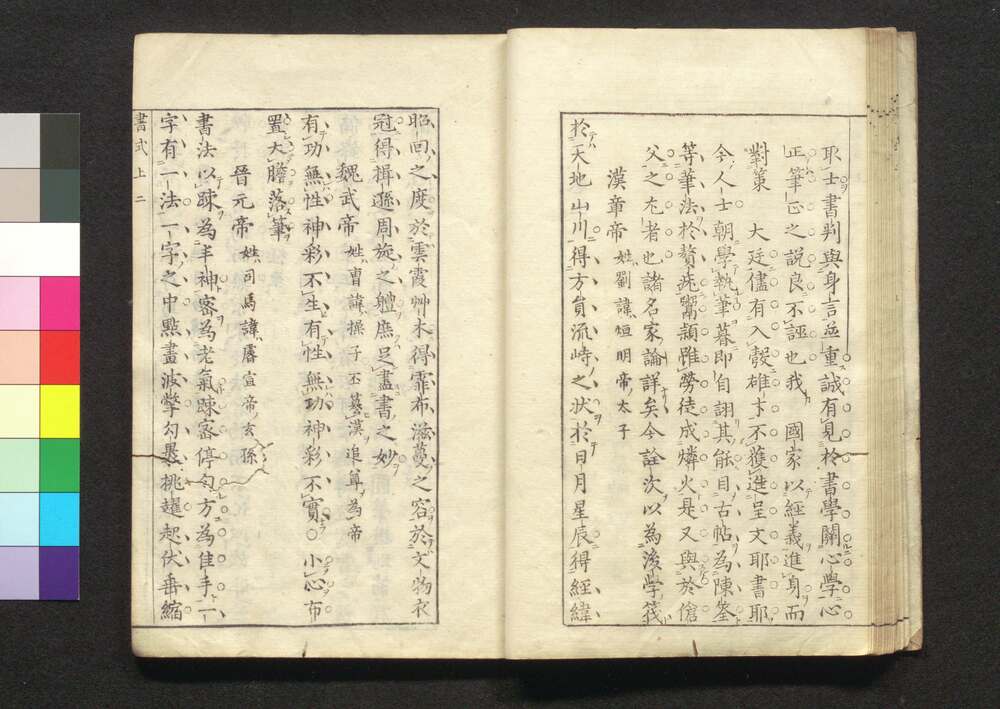 取士書判與身言並重誠有見於書學關心學心
正筆正之說良不誣也我 國家以經義進身而
對策 大廷儘有入彀雄卞不獲進呈文耶書耶
今人士朝學執筆暮即自詡其能目古帖為陳筌
等筆法於贅疣鬻頴雖勞徒成燐火是又與於傖
父之尤者也諸名家論詳矣今詮次以為後學筏
漢章帝 姓劉諱炟明帝太子
於天地山川得方員流峙之狀於日月星辰得經緯
昭回之度於雲霞艸木得霏布滋蔓之容於文物衣
冠得揖遜周旋之軆庶足盡書之妙
魏武帝 姓曹諱操子丕簒漢追尊為帝
有功無性神彩不生有性無功神彩不實○小心布
置大膽落筆
晉元帝 姓司馬諱睿宣帝玄孫
書法以踈為丰神密為老氣踈密停勻方為佳手一
字有一法一字之中點畫波撆勾畧挑趯起伏垂縮
書式 上 二